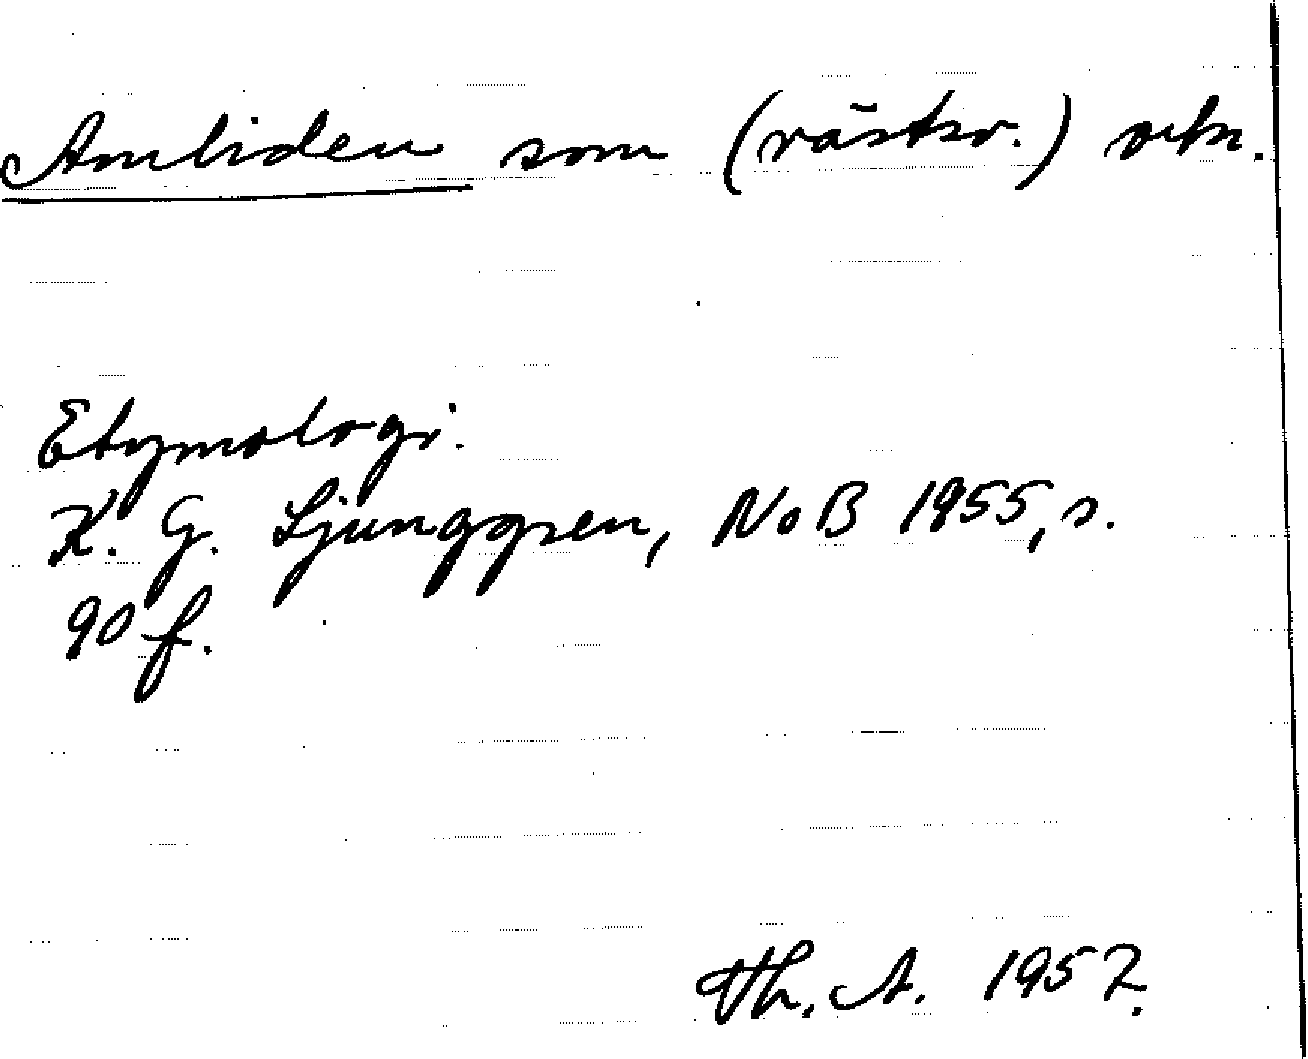 Amliden som (västsv.) ortn.
Etymologi.
K. G. Ljunggren, NoB 1955, s.
90 f.
Th. A. 1957.